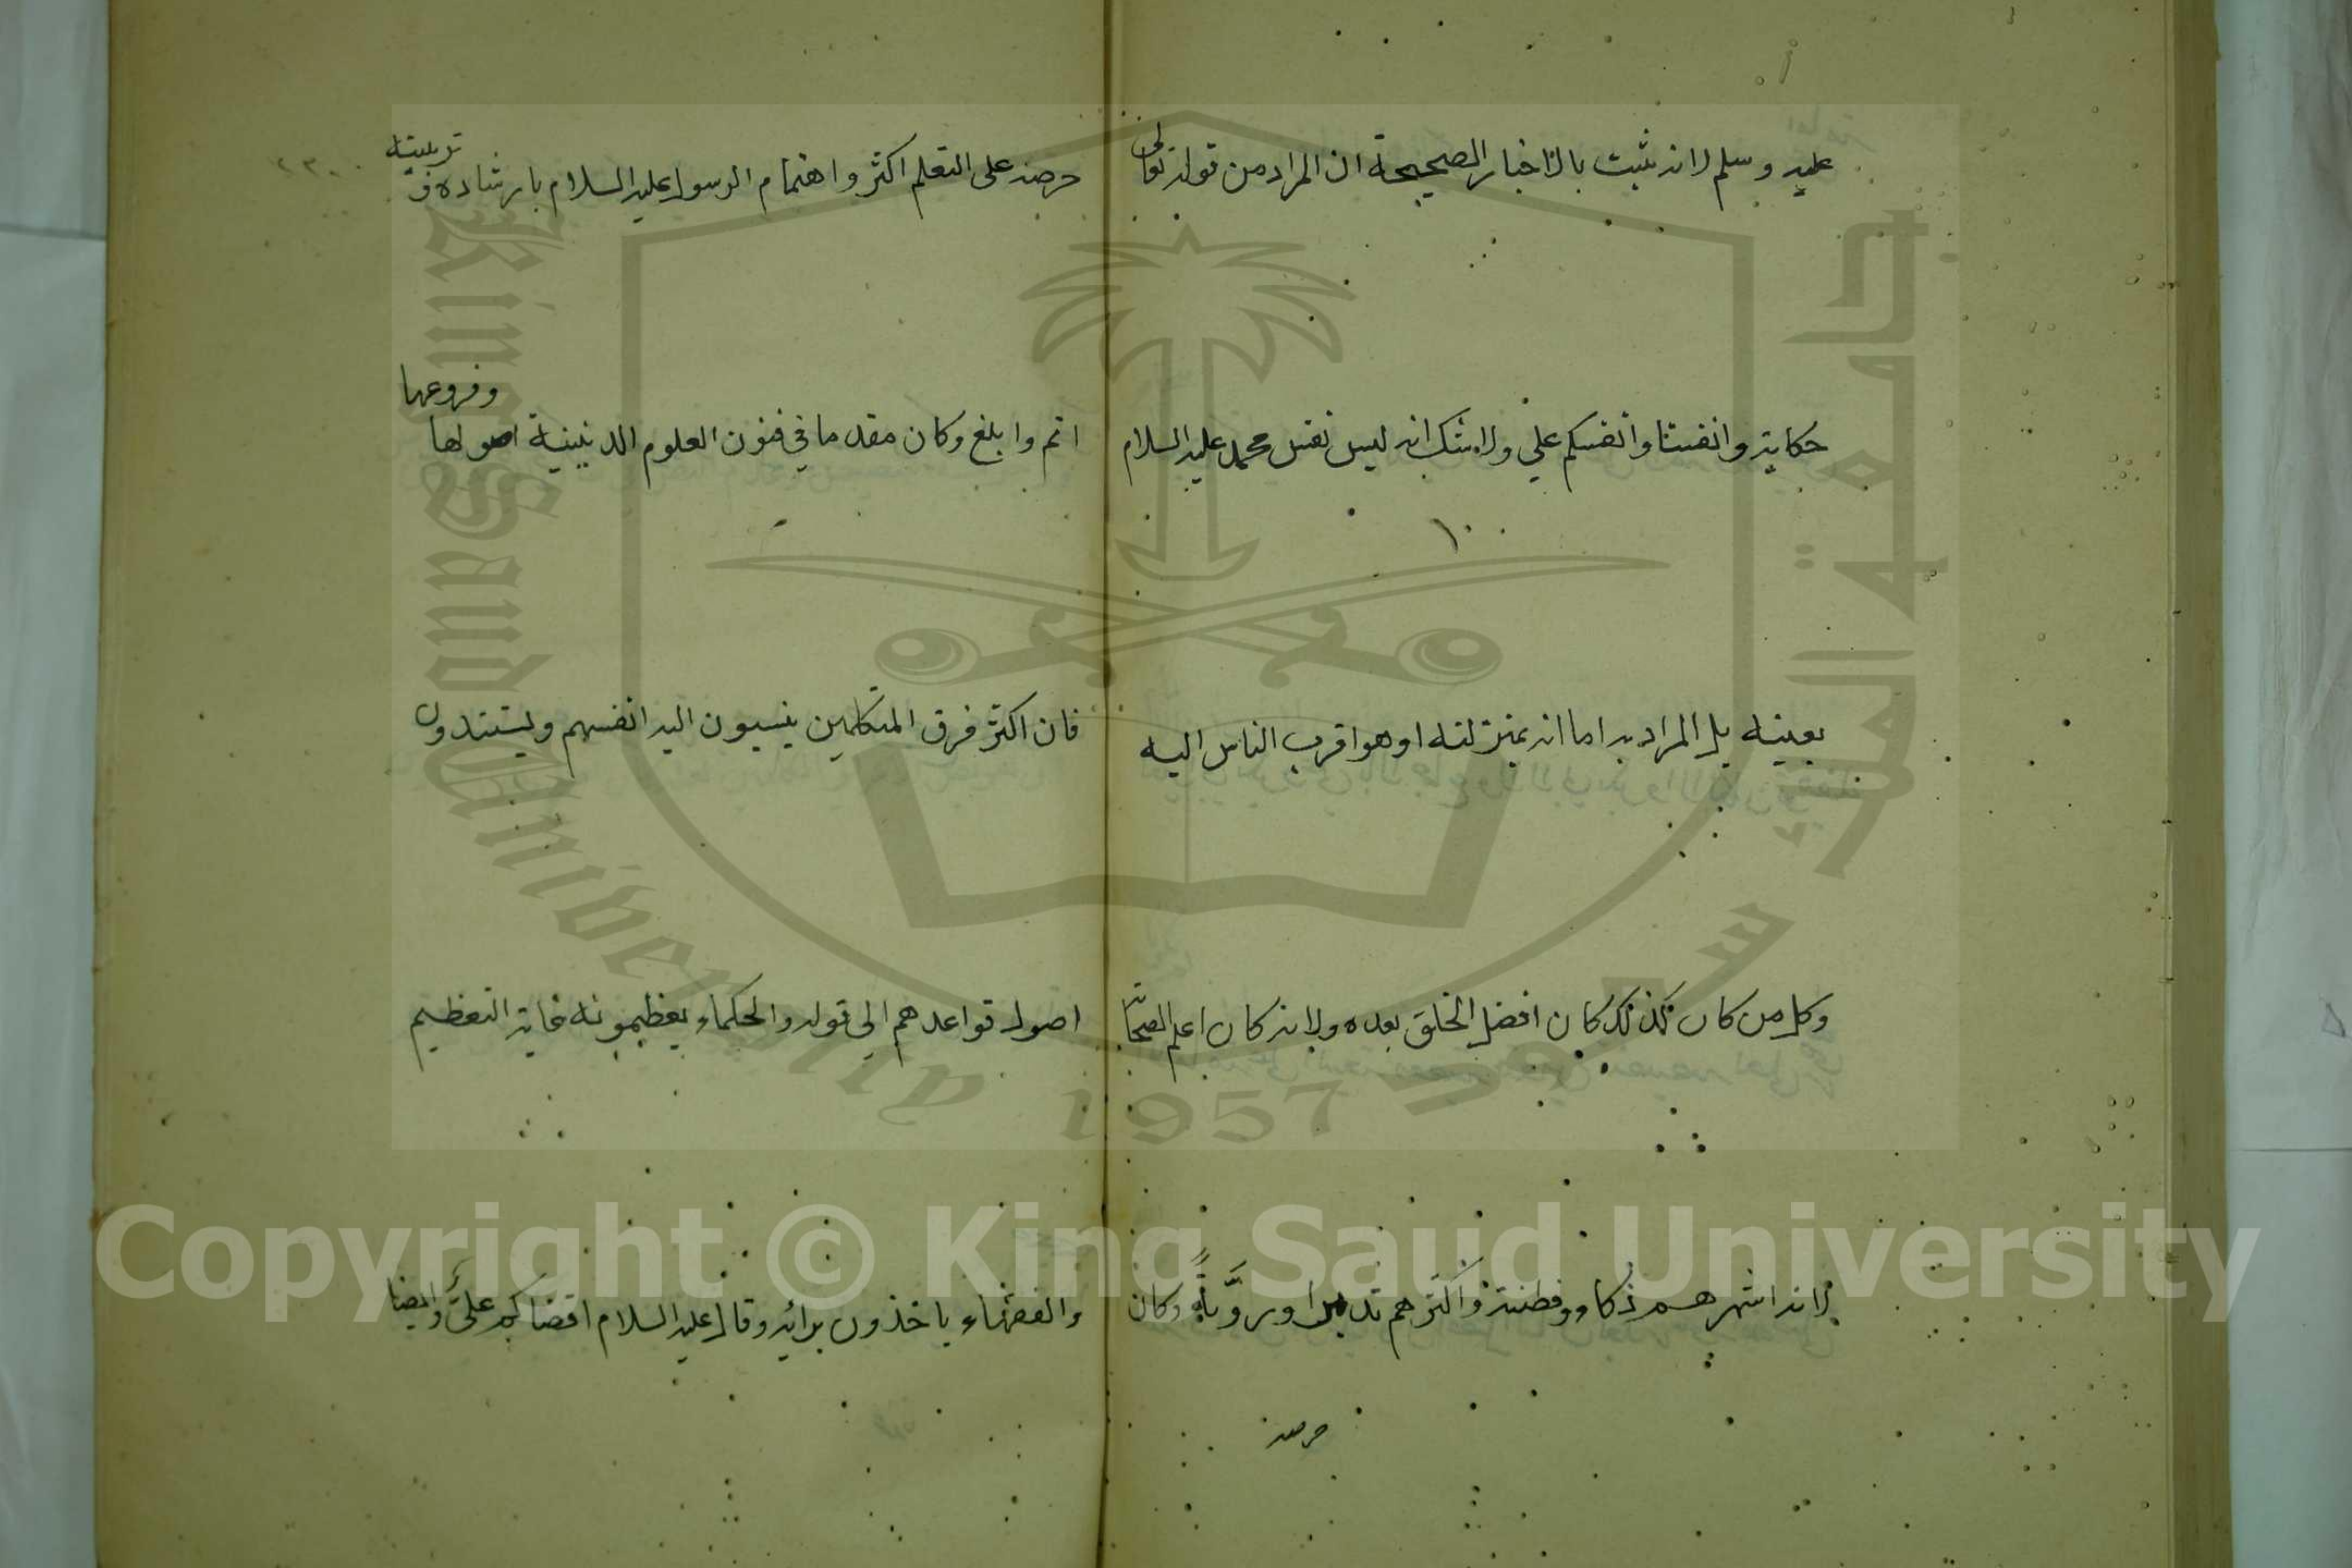 عليه وسلم لانه ثبت بالاخبار الصحيحة ان المراد من قوله تعالى
حكاية وانفسنا وانفسكم علي ولا شك انه ليس نفس محمد عليه السلام
بعينه بل المراد به اما انه بمنزلته او هو اقرب الناس اليه
وكل من كان كذلك كان افضل الخلق بعده ولانه كان اعلم الصحابة
لانه اشهرهم ذكاء وفطنة واكثرهم تدبيرا وروّيةً وكان
حرصه
حرصه على التعلم اكثر واهتمام الرسول عليه السلام بارشاده وتربيته
اتم وابلغ وكان مقدما في فنون العلوم الدينية اصولها وفروعها
فان اكثر فرق المتكلمين ينسبون اليه انفسهم ويستندون
اصول قواعدهم الى قوله والحكماء يعظمونه غاية التعظيم
والفقهاء ياخذون برائه وقال عليه السلام اقضاكم عليّ وايضا
King Saud University
جامعة الملك سعود
1957
Copyright © King Saud University